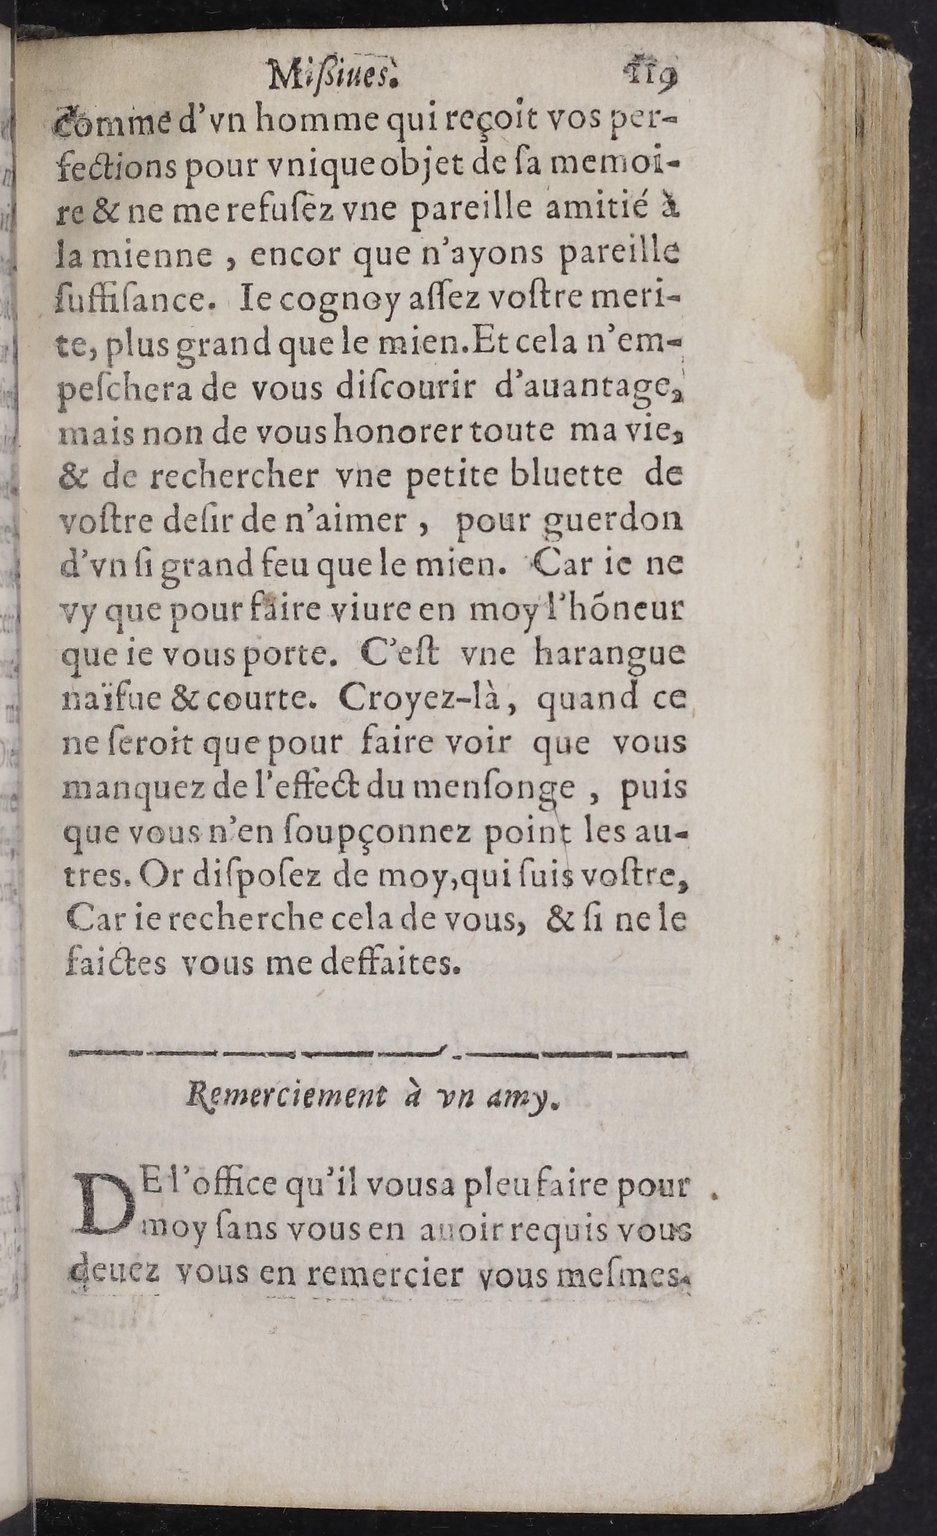 Mißiues. 119
Comme d'vn homme qui reçoit vos per-
fections pour vnique objet de ſa memoi-
re & ne me refuſez vne pareille amitié à
la mienne , encor que n'ayons pareille
ſuffiſance. Ie cognoy aſſez voſtre meri-
te, plus grand que le mien. Et cela n'em-
peſchera de vous diſcourir d'auantage,
mais non de vous honorer toute ma vie,
& de rechercher vne petite bluette de
voſtre deſir de n'aimer , pour guerdon
d'vn ſi grand feu que le mien. Car ie ne
vy que pour faire viure en moy l'hõneur
que ie vous porte. C'eſt vne harangue
naïfue & courte. Croyez-là, quand ce
ne ſeroit que pour faire voir que vous
manquez de l'effect du menſonge , puis
que vous n'en ſoupçonnez point les au-
tres. Or diſpoſez de moy, qui ſuis voſtre,
Car ie recherche cela de vous, & ſi ne le
faictes vous me deffaites.
Remerciement à vn amy.
DE l'office qu'il vous a pleu faire pour
moy ſans vous en auoir requis vous
deuez vous en remercier vous meſmes.